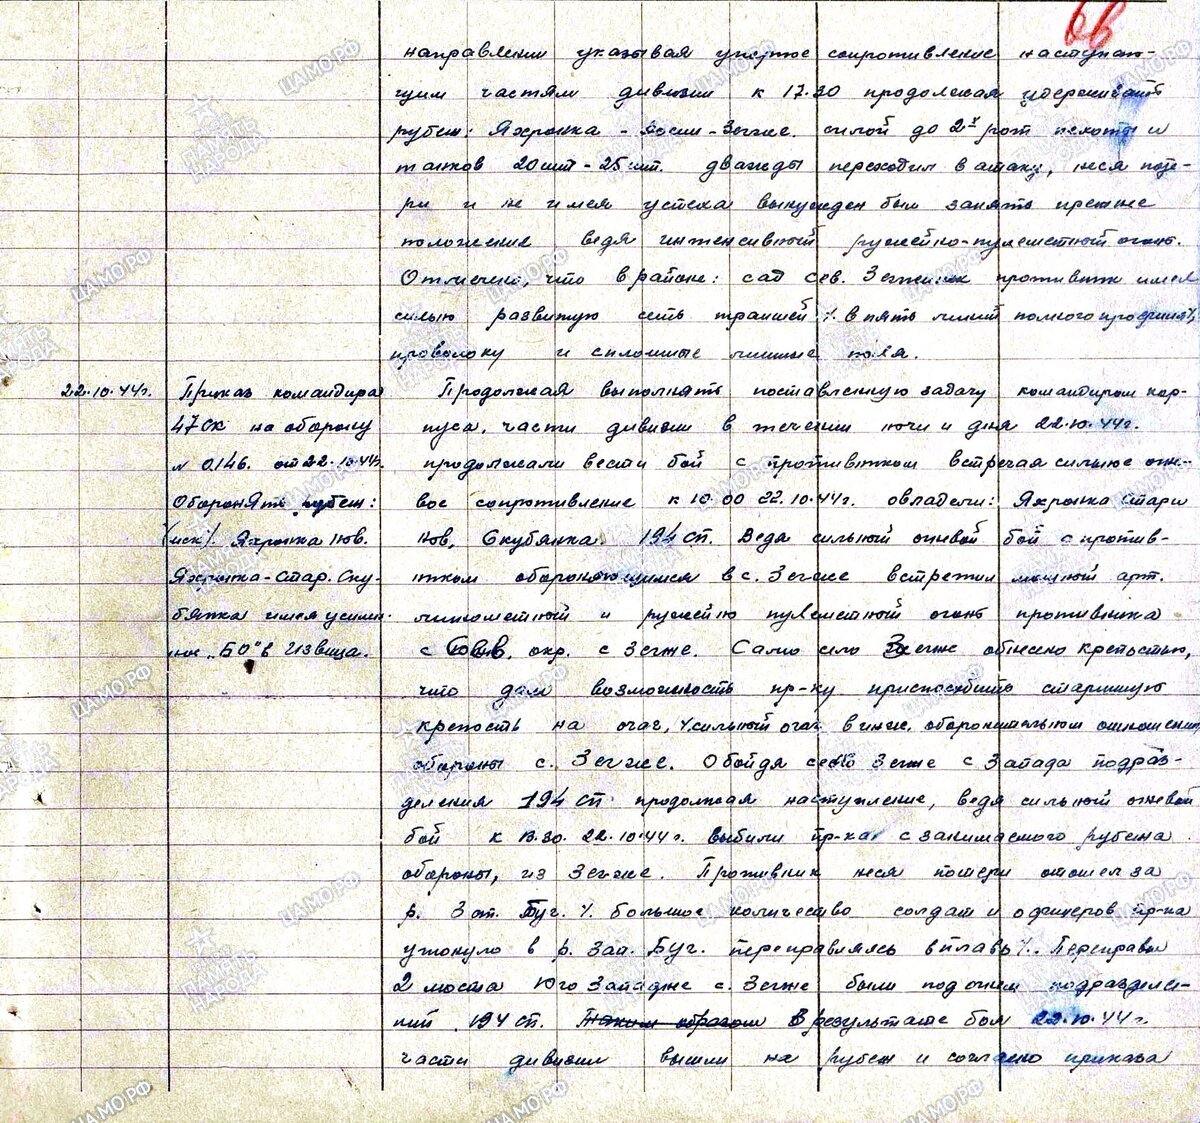 66
направлении указывая упорное сопротивление наступаю-
щим частям дивизии к 17.30 продолжая удерживать
рубеж: Яхранка - - Зегже. силой до 2х рот пехоты и
танков 20шт - 25шт. дважды переходил в атаку, неся поте-
ри и не имея успеха вынужден был занять прежнее
положение ведя интенсивный ружейно-пулеметный огонь.
Отмечено, что в районе: сад сев. противник имел
сильно развитую сеть траншей /. в пять линий полного профиля /,
проволоку и сплошные минные поля.
22.10.44г.
Приказ командира
47 ск на оборону
№ 0146. от 22.10.44г.
Оборонять рубеж:
(иск). Яхранка нов.
Яхранка - Стар. Ску-
бянка имея усилен-
ное „БО" в
Продолжая выполнять поставленную задачу командиром кор-
пуса, части дивизии в течении ночи и дня 22.10.44г.
продолжали вести бой с противником встречая сильное огне-
вое сопротивление к 10.00 22.10.44г. овладели: Яхранка стар и
нов, Скубянка. 194 СП. Ведя сильный огневой бой с против-
ником обороняющимся в с. Зегже встретил мощный арт.
минометный и ружейно пулеметный огонь противника
с окр. с Зегже. Само село Зегже обнесено крепостью,
что дал возможность пр-ку приспособить старинную
крепость на очаг, /.сильный очаг в инж. оборонительном отношении
обороны с. Зегже. Обойдя село Зегже с Запада подраз-
деления 194 СП. продолжая наступление, ведя сильный огневой
бой к 13.30. 22.10.44г. выбили пр-ка с занимаемого рубежа
обороны, из Зегже. Противник неся потери отошел за
р. Зап. Буг. /. Большое количество солдат и офицеров пр-ка
утонуло в р. Зап. Буг. переправляясь вплавь /. Переправы
2 моста Юго Западнее с. Зегже были под огнем подразделе-
ний 194 СП. Таким образом В результате боя 22.10.44г.
части дивизии вышли на рубеж и согласно приказа